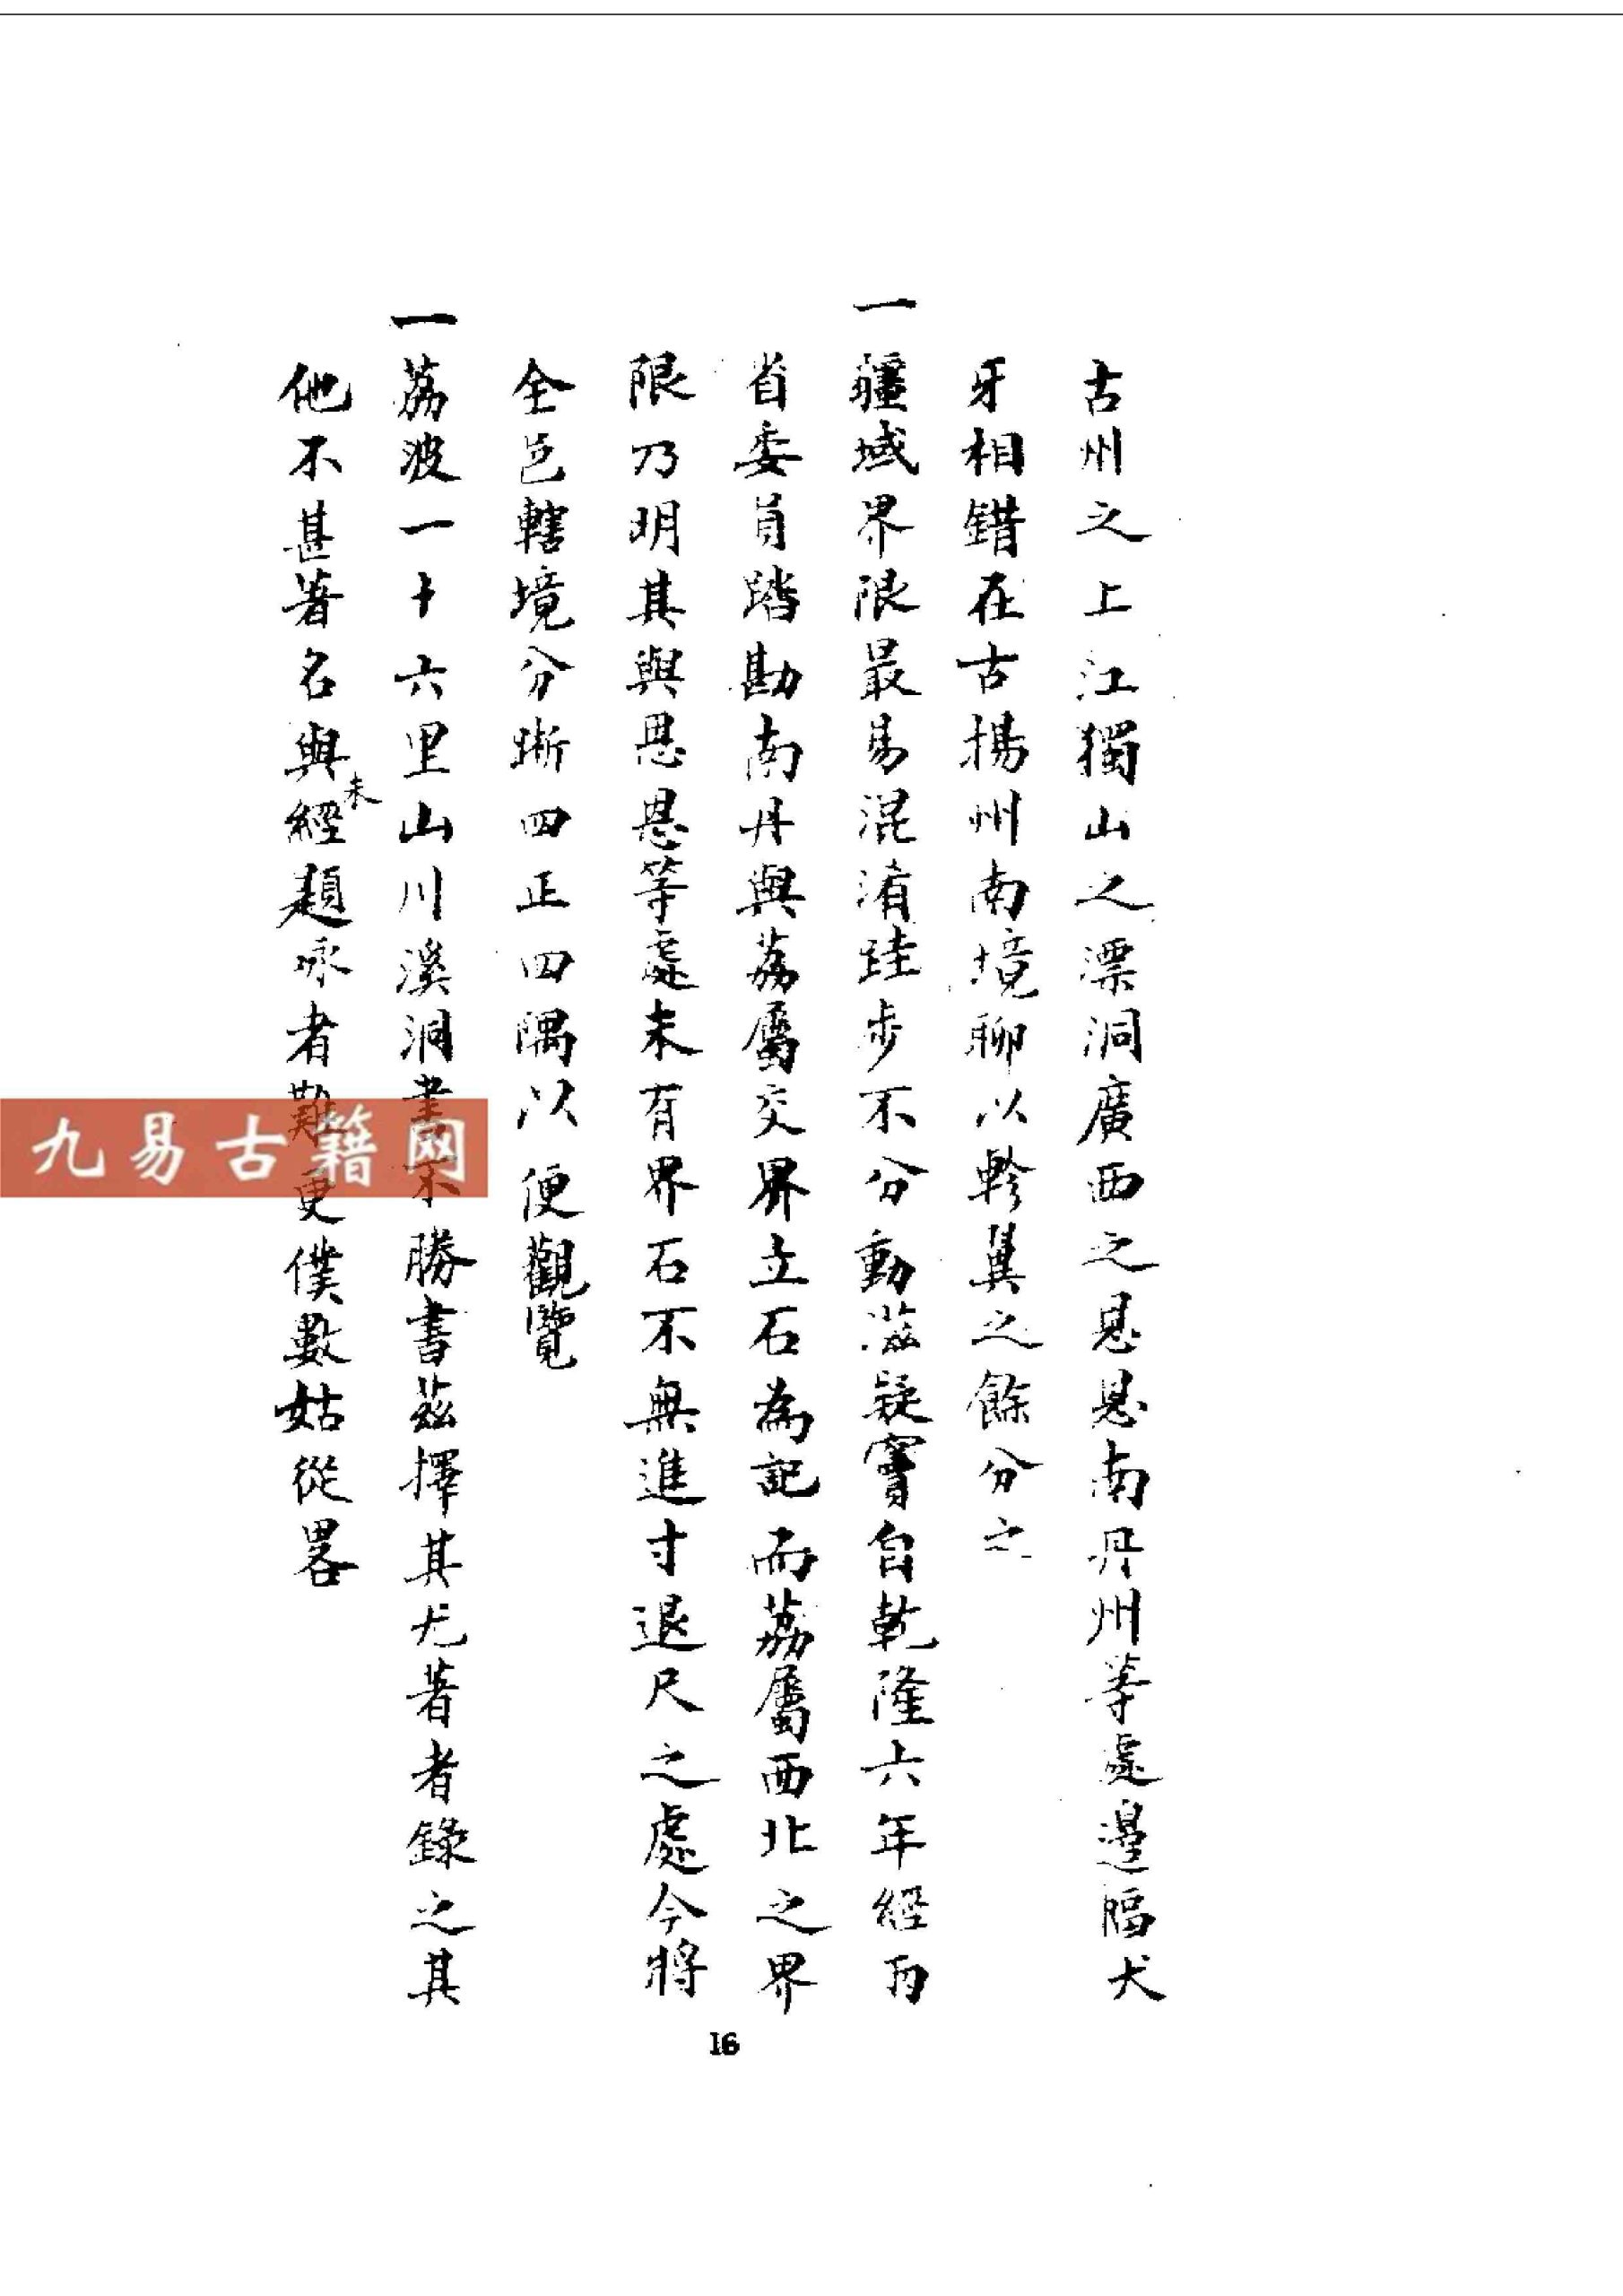 古州之上江獨山之漂洞廣西之恩恩南丹州等處邊幅犬
牙相錯在古揚州南境聊以軫翼之餘分之
一疆域界限最易混淆跬步不分動滋疑竇自乾隆六年經兩
省委員踏勘南丹與荔屬交界立石為記而荔屬西北之界
限乃明其與思恩等處未有界石不無進寸退尺之處今將
全邑轄境分晰四正四隅以便觀覽
一荔波一十六里山川溪洞書不勝書茲擇其尤著者錄之其
他不甚著名與未經題咏者難更僕數姑從畧
九易古籍网
16